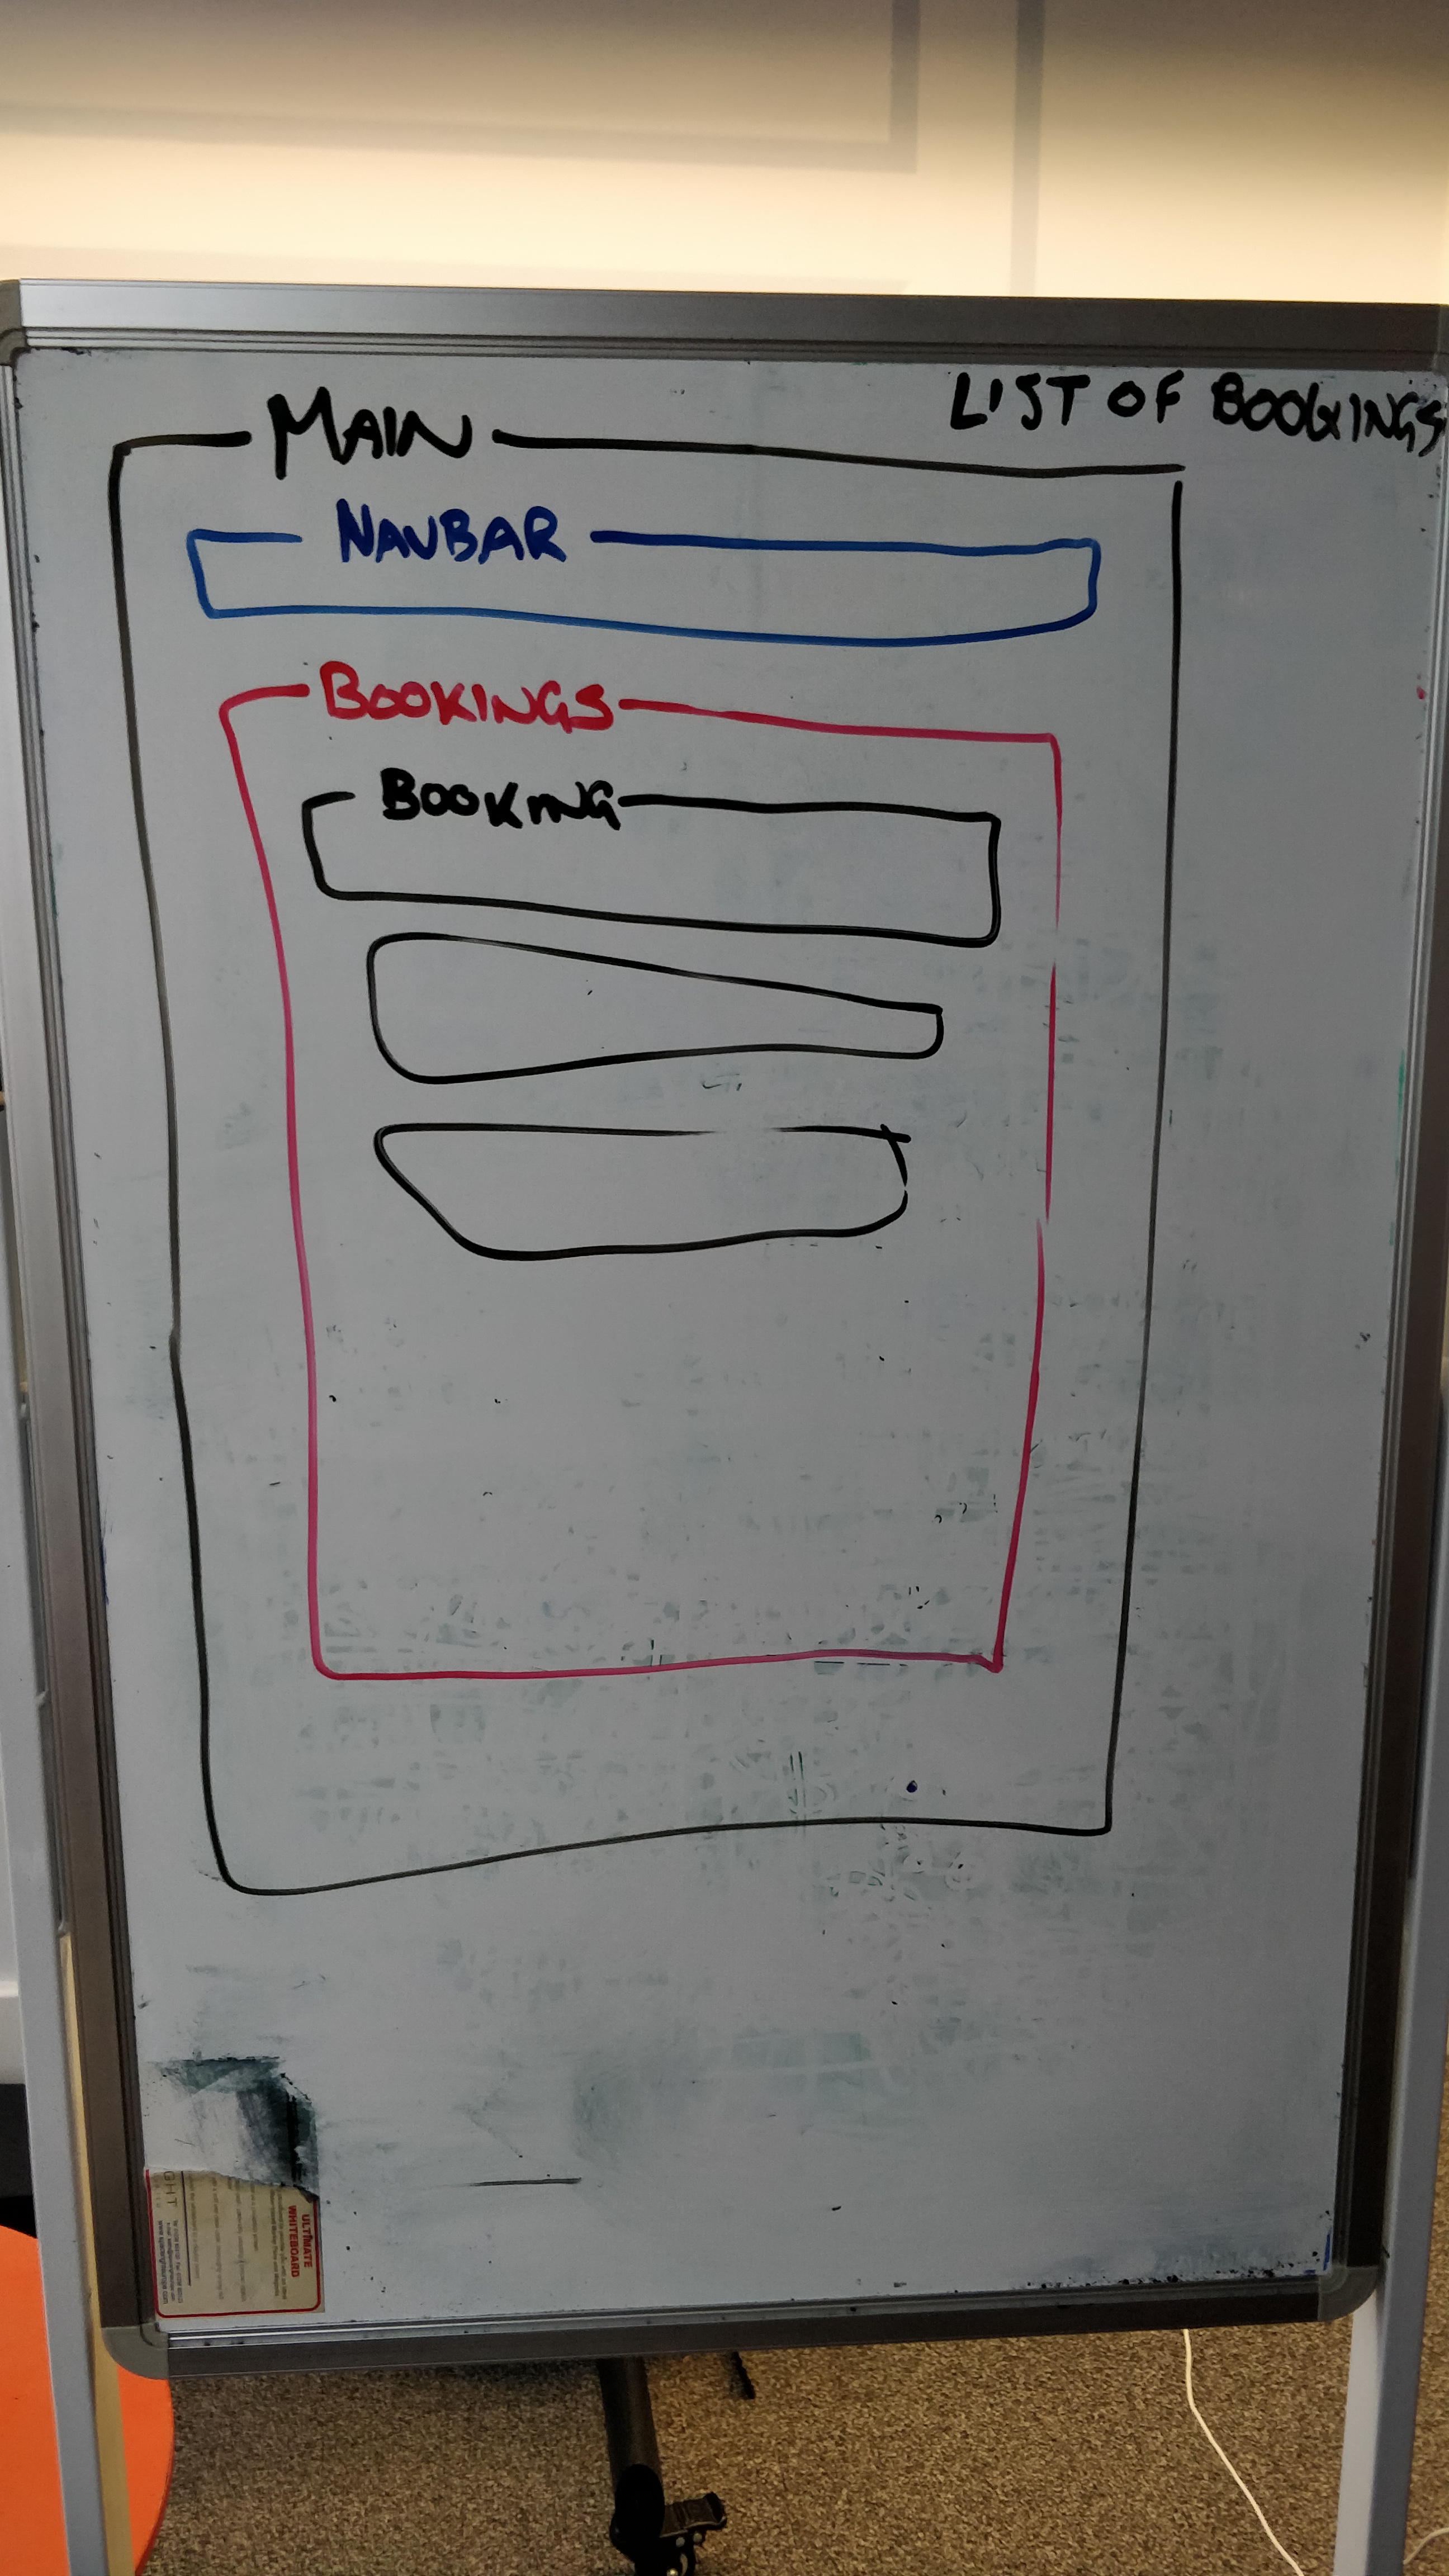 LIST OF BOOKINGS
MAIN
NAVBAR
BOOKINGS
BOOKING
ULTIMATE
WHITEBOARD